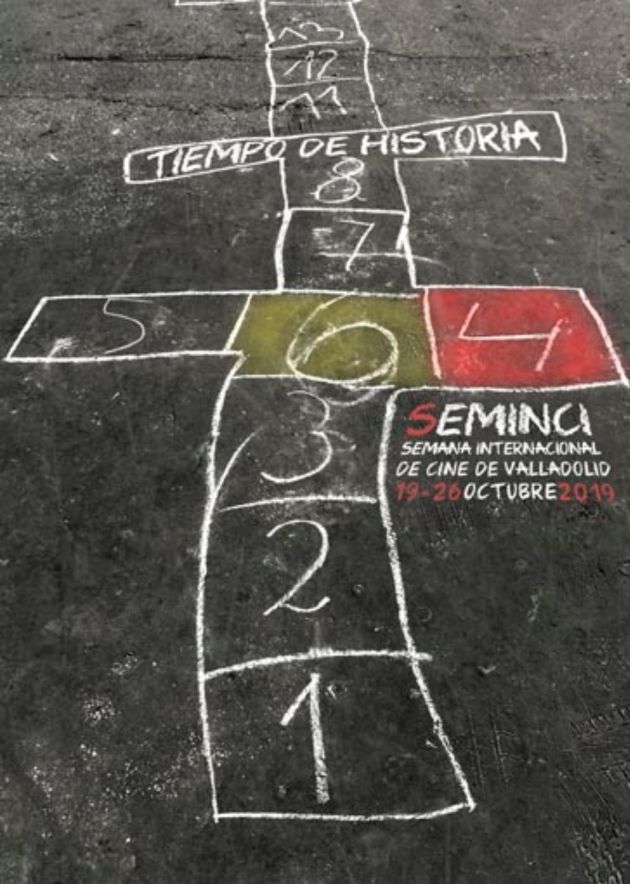 13
12
11
TIEMPO DE HISTORIA
8
7
5 6 4
3
SEMINCI
SEMANA INTERNACIONAL
DE CINE DE VALLADOLID
19-26 OCTUBRE 2019
2
1